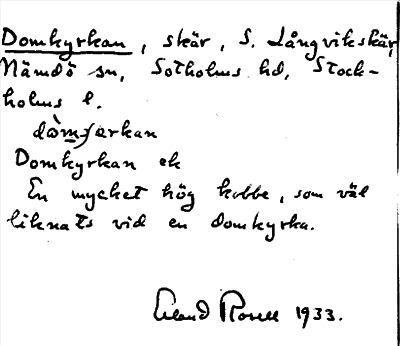 Domkyrkan, skär, S. Långvikskär,
Nämdö sn, Sotholms hd, Stock-
holms l.
dòmçarkan
Domkyrkan ek
En mycket hög kobbe, som väl
liknats vid en domkyrka.
Erland Rosell 1933.